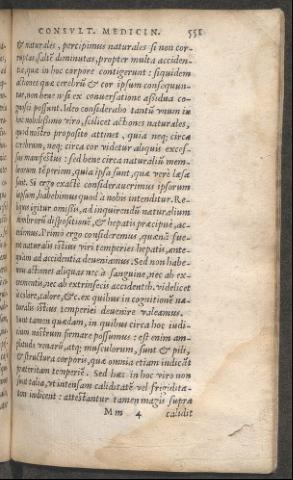 CONSVLT. MEDICIN. 551
& naturales, percipimus naturales si non cor-
ruptas, saltẽ diminutas, propter multa acciden-
tia, quæ in hoc corpore contigerunt: siquidem
actiones quæ cerebrũ & cor ipsum consequun-
tur, non bene nisi ex conuersatione assidua co-
gnosci possunt. Ideo considerabo tantũ vnum in
hoc nobilissimo viro, scilicet actiones naturales,
quod nostro proposito attinet, quia neq; circa
cerebrum, neq; circa cor videtur aliquis exces-
sus manifestus: sed bene circa naturaliũ mem-
brorum tẽperiem, quia ipsa sunt, quæ verè læsa
sunt. Si ergo exactè considerauerimus ipsorum
lapsum, habebimus quod à nobis intenditur. Re-
liquis igitur omissis, ad inquirendũ naturalium
membrorũ dispositionẽ, & hepatis præcipuè, ac-
cedimus. Primò ergo consideremus, quænã fue-
rit naturalis istius viri temperies hepatis, ante-
quàm ad accidentia deueniamus. Sed non habe-
mus actiones aliquas nec à sanguine, nec ab ex-
crementis, nec ab extrinsecis accidentib. videlicet
à colore, calore, &c. ex quibus in cognitionẽ na-
turalis istius temperiei deuenire valeamus.
Sunt tamen quædam, in quibus circa hoc iudi-
cium nostrum firmare possumus: est enim am-
plitudo venarũ, atq; musculorum, sunt & pili,
& structura corporis, quæ omnia etiam indicãt
præteritam temperiẽ. Sed hæc in hoc viro non
sunt talia, vt intensam caliditatẽ vel frigidita-
tem indicent: attestantur tamen magis supra
Mm 4 calidit